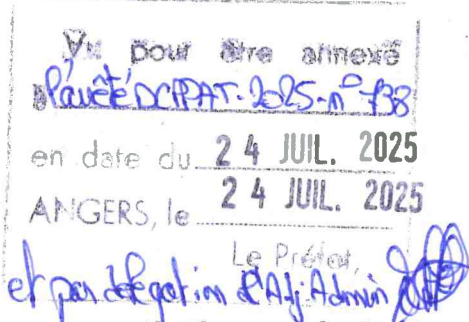 Vu pour être annexé
à l'arrêté DCPPAT-2025-n° 738
en date du 24 JUIL. 2025
ANGERS, le 24 JUIL. 2025
Le Préfet,
et par délégation l'Adj. Admin